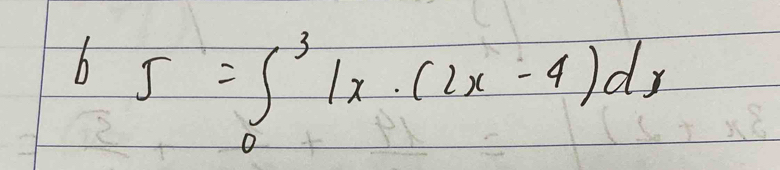 b J = ∫₀³ |x.(2x - 4)dx